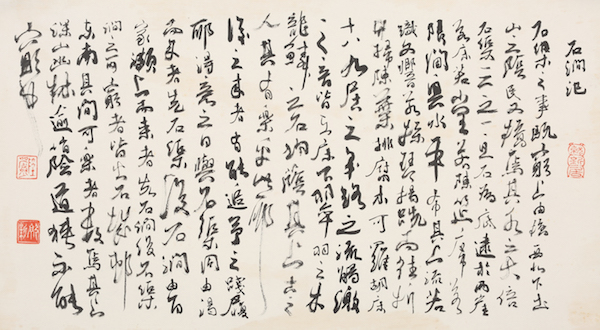 石澗記
石渠之事既窮上由橋西北下土
山之陰民又橋焉其水之大倍
石渠三之一亘石為底達於兩崖
若床若堂若陳筵席若
限閫奧水平布其上流若
織文響若操琴揭跣而往折
竹掃陳葉排腐木可羅胡床
十八九居之交絡之流觸激
之音皆在床下翠羽之木
龍鱗之石均蔭其上古之
人其有樂乎此耶
後之來者有能追予之踐履
耶得意之日與石渠同由渴
而來者先石渠後石澗由百
家瀨上而來者先石澗後石渠
澗之可窮者皆出石城村
東南其間可樂者數焉其上
深山幽林逾峭險道狹不可
窮